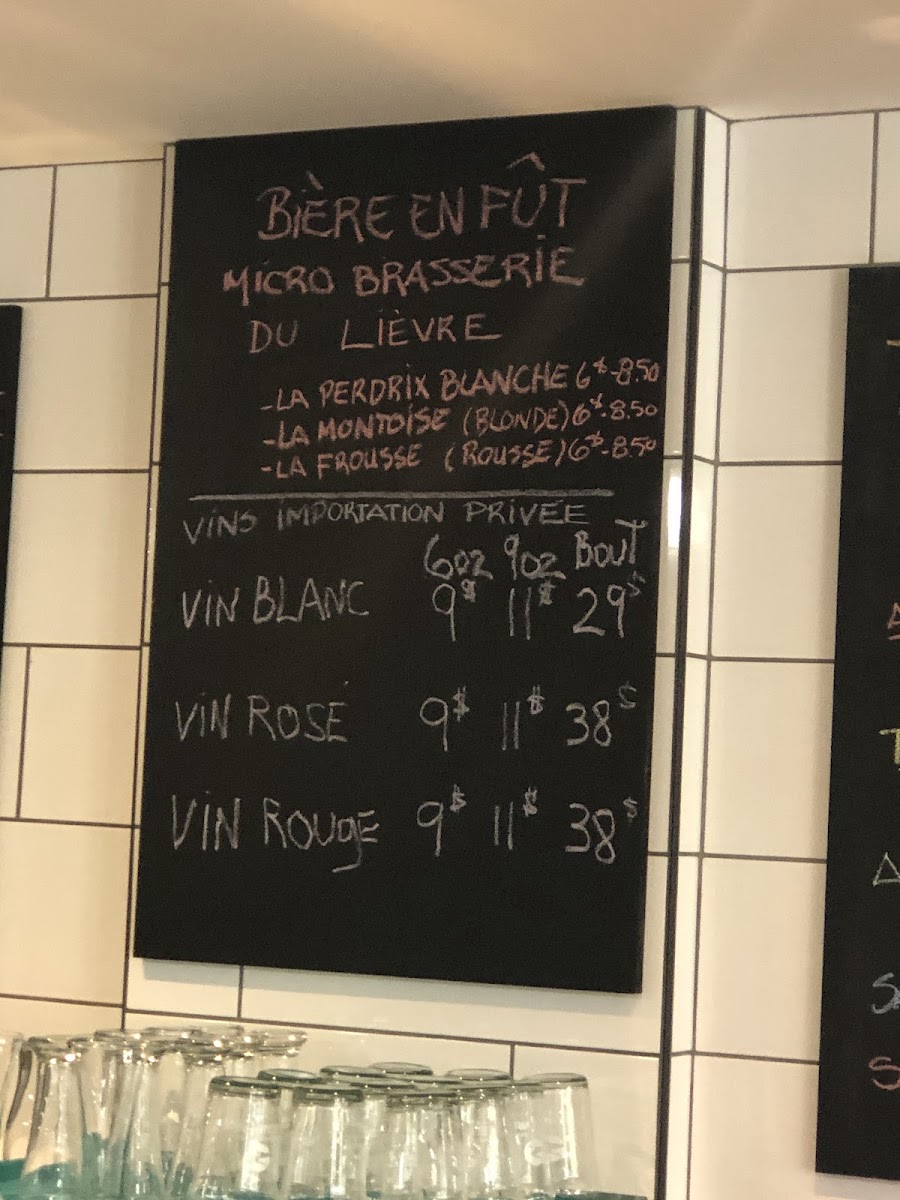 BIÈRE EN FÛT
MICRO BRASSERIE
DU LIÈVRE
-LA PERDRIX BLANCHE 6$-8.50
-LA MONTOISE (BLONDE) 6$-8.50
-LA FROUSSE (ROUSSE) 6$-8.50
VINS IMPORTATION PRIVÉE
6oz 9oz BOUT
VIN BLANC 9$ 11$ 29$
VIN ROSÉ 9$ 11$ 38$
VIN ROUGE 9$ 11$ 38$